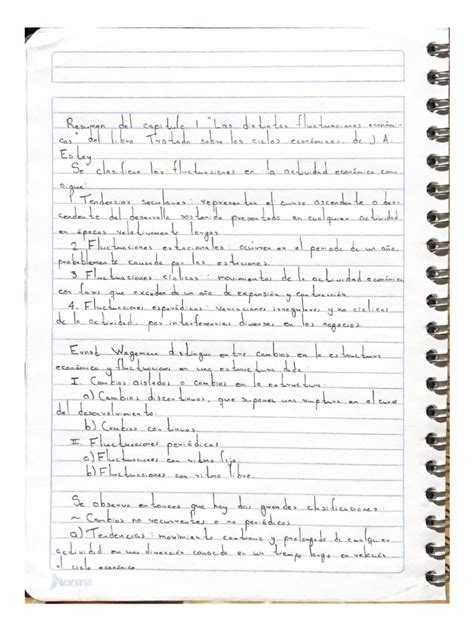 Resumen del capitulo 1 "Las distintas fluctuaciones económi-
cas" del libro Tratado sobre los ciclos económicos, de J.A.
Estey
Se clasifican las fluctuaciones en la actividad económica como
sigue:
1. Tendencias seculares: representan el curso ascendente o des-
cendente del desarrollo sostenido presentado en cualquier actividad
en épocas relativamente largas
2. Fluctuaciones estacionales: ocurren en el periodo de un año,
probablemente causada por las estaciones.
3. Fluctuaciones cíclicas: movimientos de la actividad económica
con fases que exceden de un año de expansión y contracción.
4. Fluctuaciones esporádicas: variaciones irregulares y no cíclicas
de la actividad por interferencias diversas en los negocios.
Ernst Wagemann distingue entre cambios en la estructura
económica y fluctuaciones en una estructura dada
I. Cambios aislados o cambios en la estructura:
a) Cambios discontinuos, que suponen una ruptura en el curso
del desenvolvimiento.
b) Cambios continuos.
II. Fluctuaciones periódicas
a) Fluctuaciones con ritmo fijo.
b) Fluctuaciones con ritmo libre.
Se observa entonces que hay dos grandes clasificaciones
~ Cambios no recurrentes o no periódicos
a) Tendencias: movimiento continuo y prolongado de cualquier
actividad en una dirección conocida en un tiempo largo en relación
al ciclo económico.
Norma